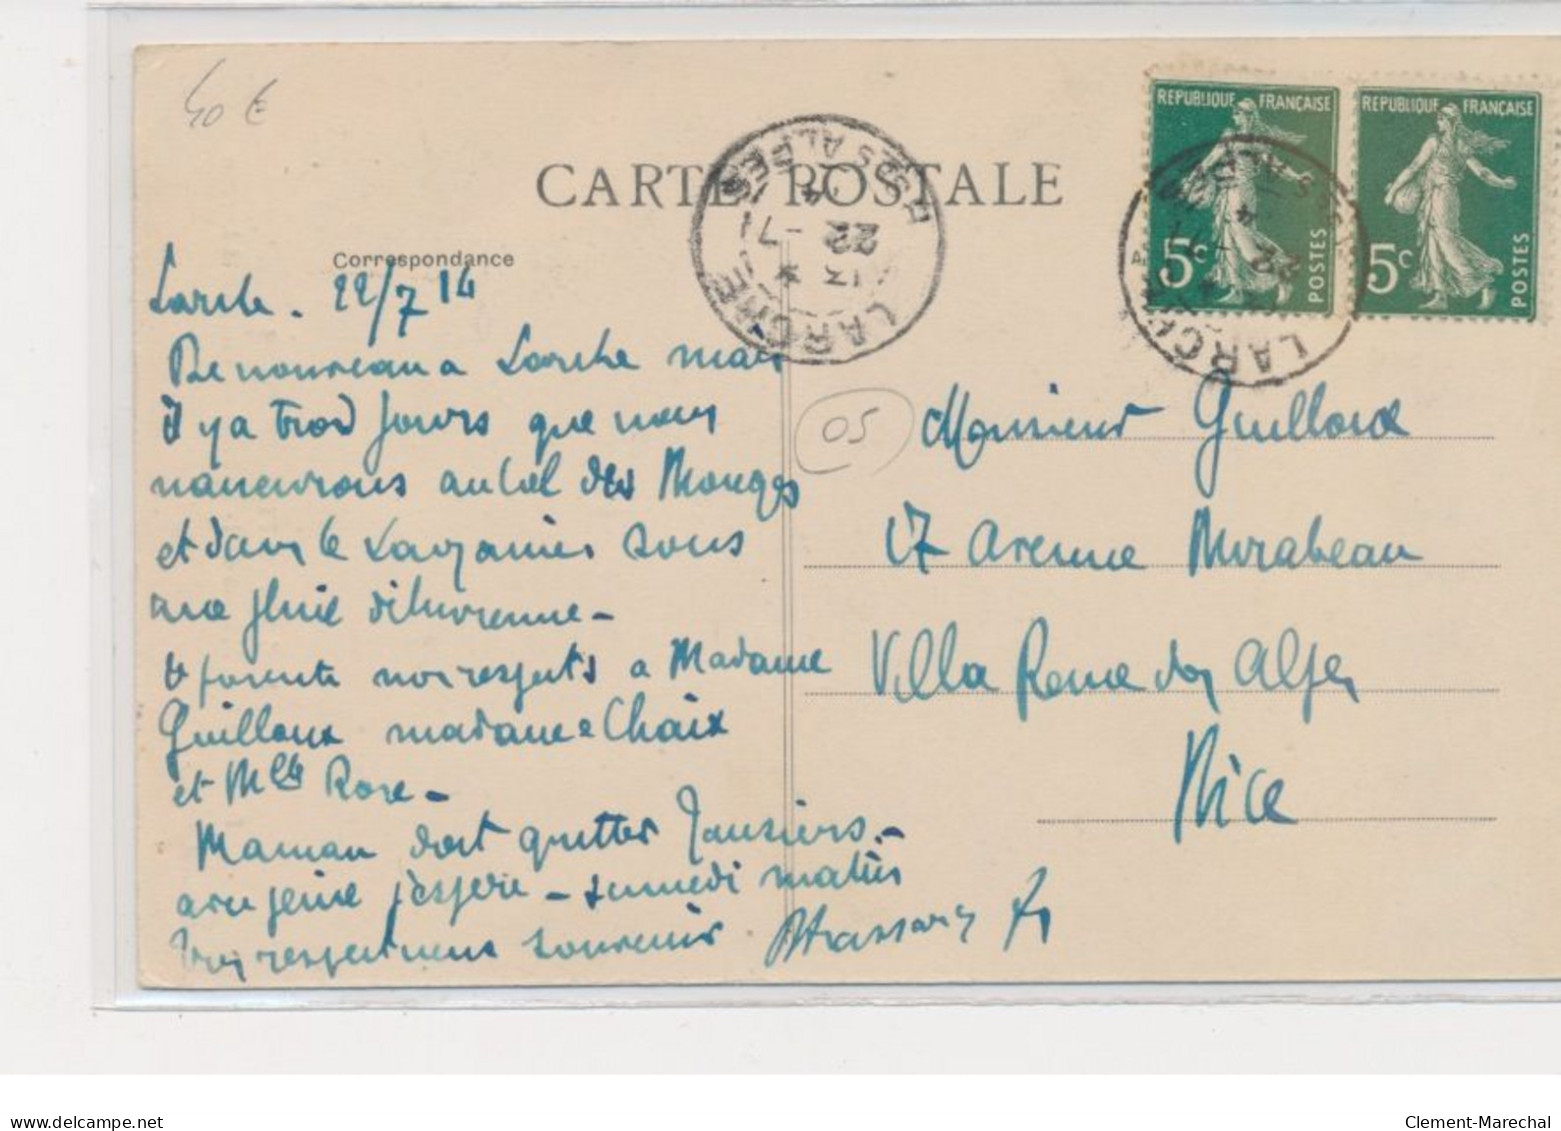 40 €
CARTE POSTALE
REPUBLIQUE FRANÇAISE
5c
POSTES
REPUBLIQUE FRANÇAISE
5c
POSTES
LARCHE
13 *
22 -7
14
BSES ALPES
LARCHE
22 -7
14
Correspondance
Larche. 22/7 14
De nouveau a Larche mais
il y a trois jours que nous
manœuvrons au col des Monges
et dans le Lauzanier sous
une pluie diluvienne -
presente nos respects a Madame
Guilloux madame Chaix
et Melle Rose -
Maman doit quitter Jausiers -
avec peine j'espère - samedi matin
Très respectueux souvenir
05
Monsieur Guilloux
17 Avenue Mirabeau
Villa Reine des Alpes
Nice
www.delcampe.net
Clement-Marechal